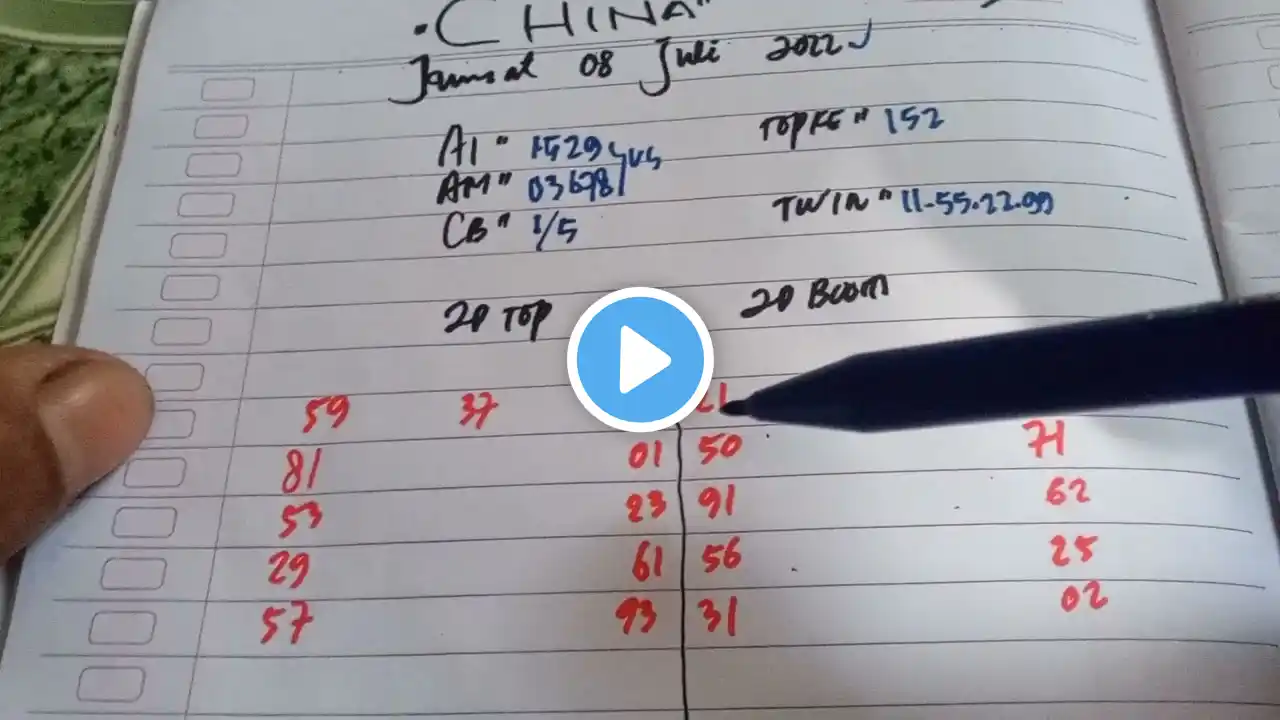 "CHINA"
Jumsat 08 Juli 2022
AI" 1529 TOP KE" 152
AM" 03678
CB" 1/5 TWIN" 11-55.22.99
2D TOP 2D BOOM
59 37 21
81 01 50 71
53 23 91 62
29 61 56 25
57 93 31 02